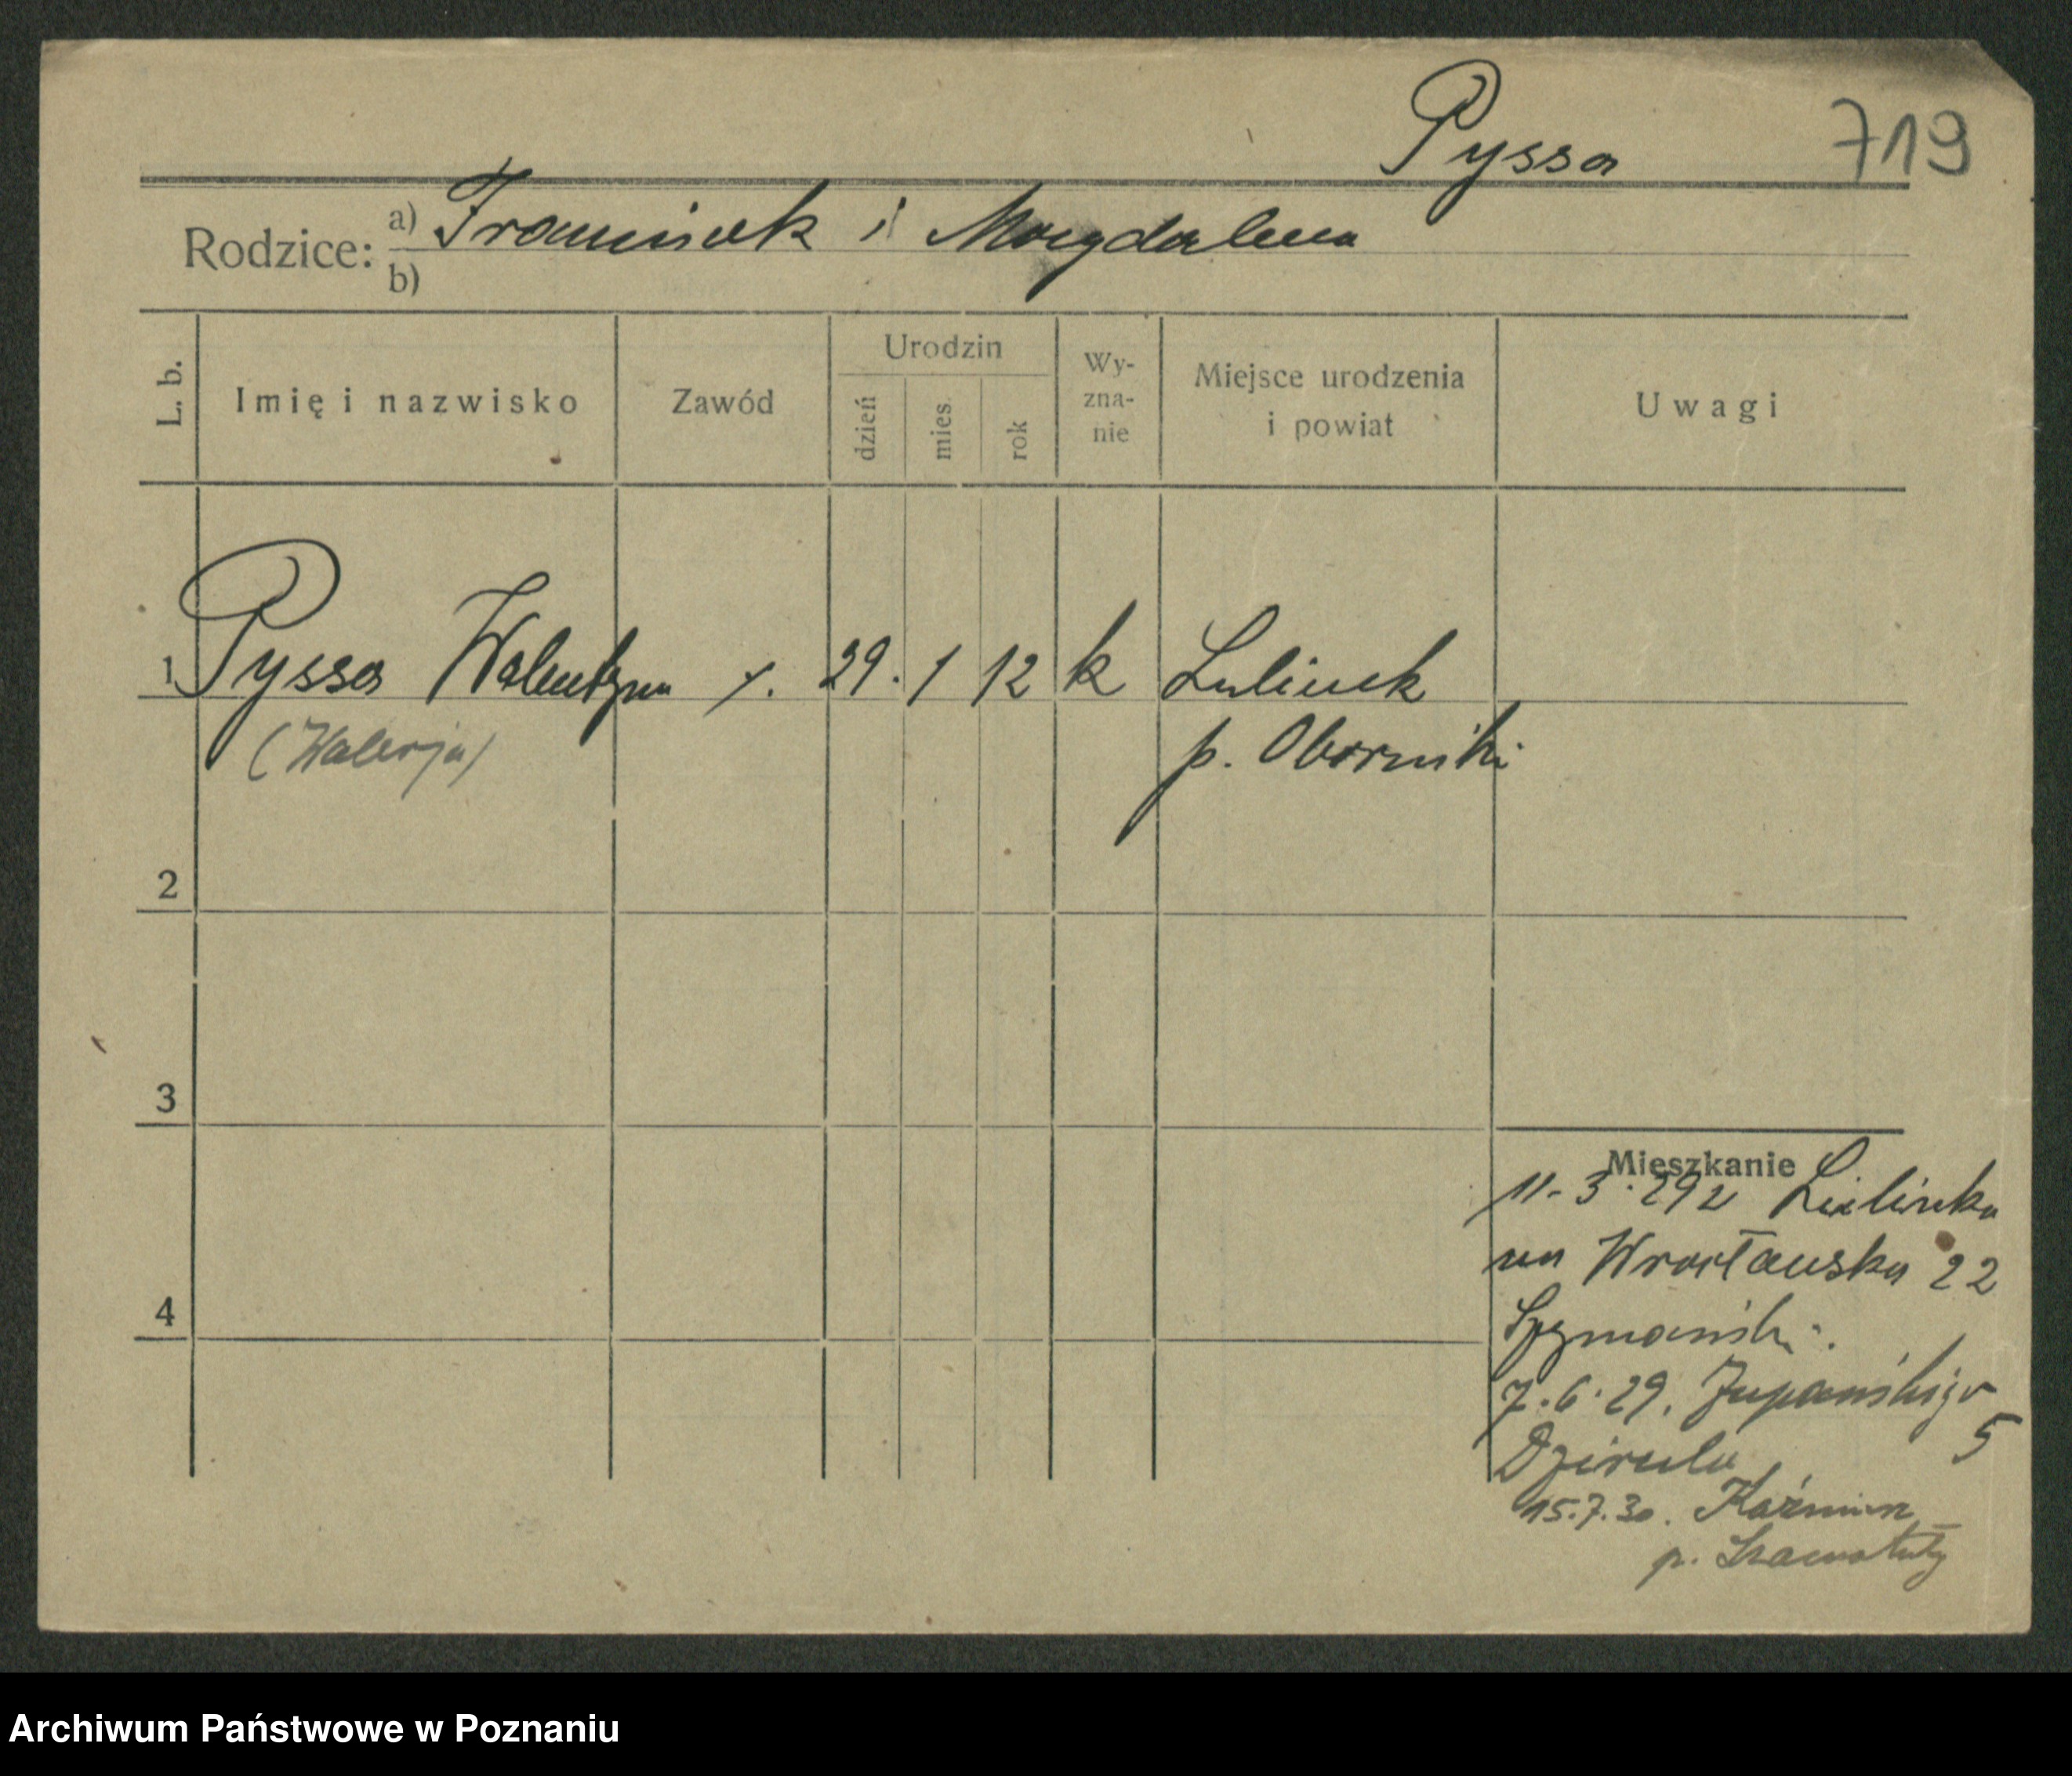 Pyssa 719
Rodzice: a) Franciszek i Magdalena
b)
L. b. Imię i nazwisko Zawód Urodzin dzień mies. rok Wy-zna-nie Miejsce urodzenia i powiat Uwagi
1 Pyssa Walentyna 29. 1 12 k Lulinek
(Walerja) p. Oborniki
2
3
Mieszkanie
11.3.29 z Lulinka
na Wrocławska 22
4
Szymański.
7.6.29. Żupańskiego 5
15.7.30. Kaźmierz
p. Szamotuły
Archiwum Państwowe w Poznaniu